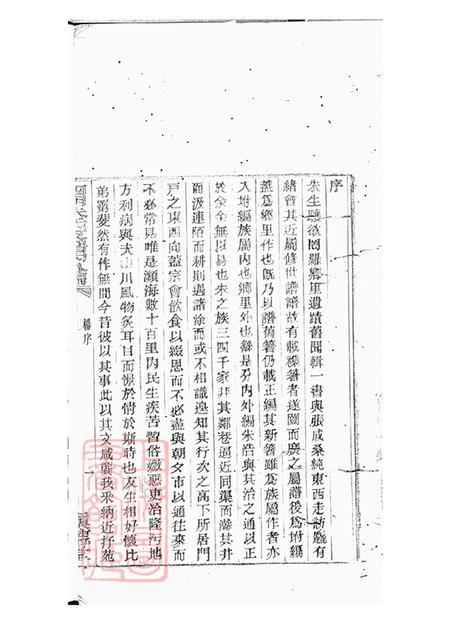 序
朱生 欲罔羅鄉里遺蹟舊聞輯一書與張成桑純東西走訪 有
緒會其近屬修世譜譜故有載 著者遂闢而廣之屬 後為坿編
蓋為鄉里作也既乃以譜舊著仍載正編其新著雖為族屬作者亦
入坿編族屬內也鄉里外也 是分內外編朱浩與其治之通以正
於余余無以易也朱之族三四千家非其鄰巷逼近同渠而 其井
匯汲連陌而耕則遇諸涂而或不相識遑知其行次之高下所居門
戶之東西向蓋宗會飲食以綴恩而不必盡與朝夕市以通往來而
不必常見唯是瀕海數十百里內民生疾苦習俗 惡吏治隆污地
方利病與夫山川風物炙耳目而悵於情於斯時也友生相好懷比
弟 斐然有作無間今昔彼以其事此以其文咸 我采納近抒苑
楊序